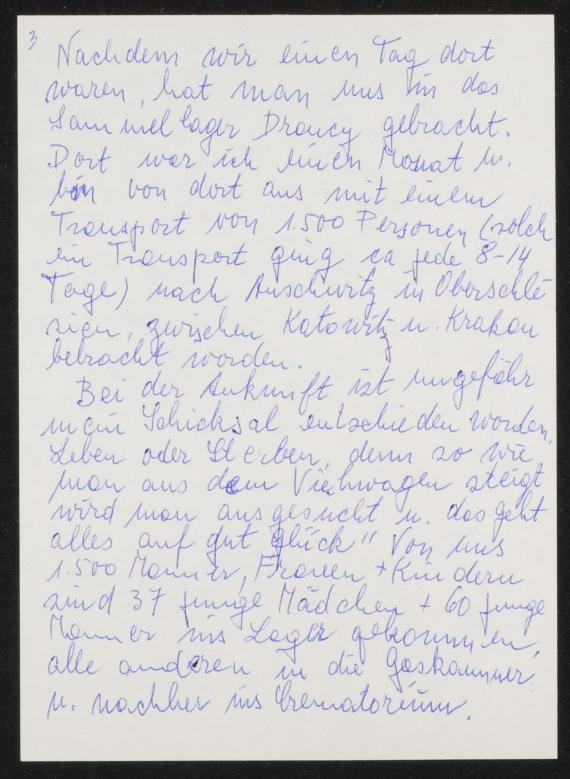 3
Nachdem wir einen Tag dort
waren, hat man uns in das
Sammellager Drancy gebracht.
Dort war ich einen Monat u.
bin von dort aus mit einem
Transport von 1.500 Personen (solch
ein Transport ging ca jede 8-14
Tage) nach Auschwitz in Oberschle-
sien, zwischen Katowitz u. Krakau
bebracht worden.
Bei der Ankunft ist ungefähr
mein Schicksal entschieden worden.
Leben oder Sterben, denn so wie
man aus dem Viehwagen steigt
wird man ausgesucht u. das geht
alles auf gut Glück" Von uns
1.500 Männer, Frauen + Kindern
sind 37 junge Mädchen + 60 junge
Männer ins Lager gekommen,
alle anderen in die Gaskammer
u. nachher ins Crematorium.